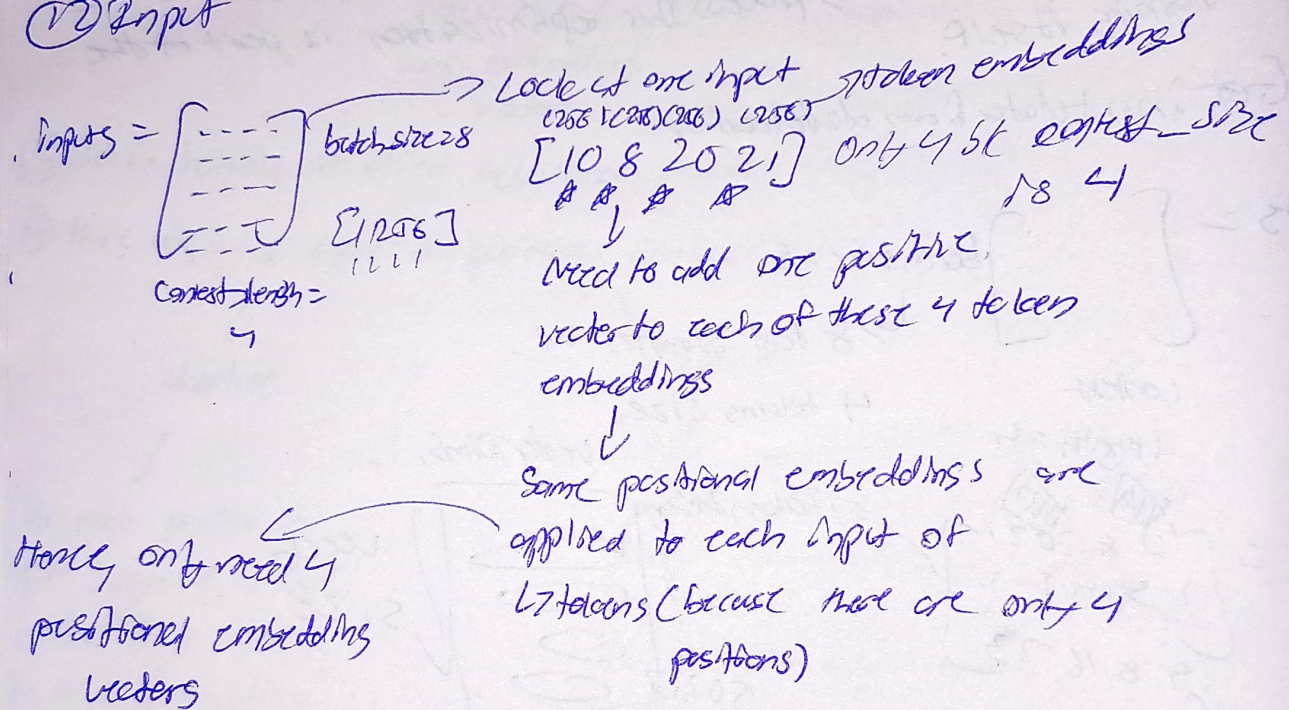 Input
inputs =
batch size = 8
[1256]
1 2 3 4
context length =
4
→ Look at one input → token embeddings
(256) (256) (256) (256)
[10 8 20 21] only 4 bc context_size
is 4
Need to add one positive
vector to each of these 4 token
embeddings
Same positional embeddings are
applied to each input of
tokens (because there are only 4
positions)
Hence, only need 4
positional embedding
vectors